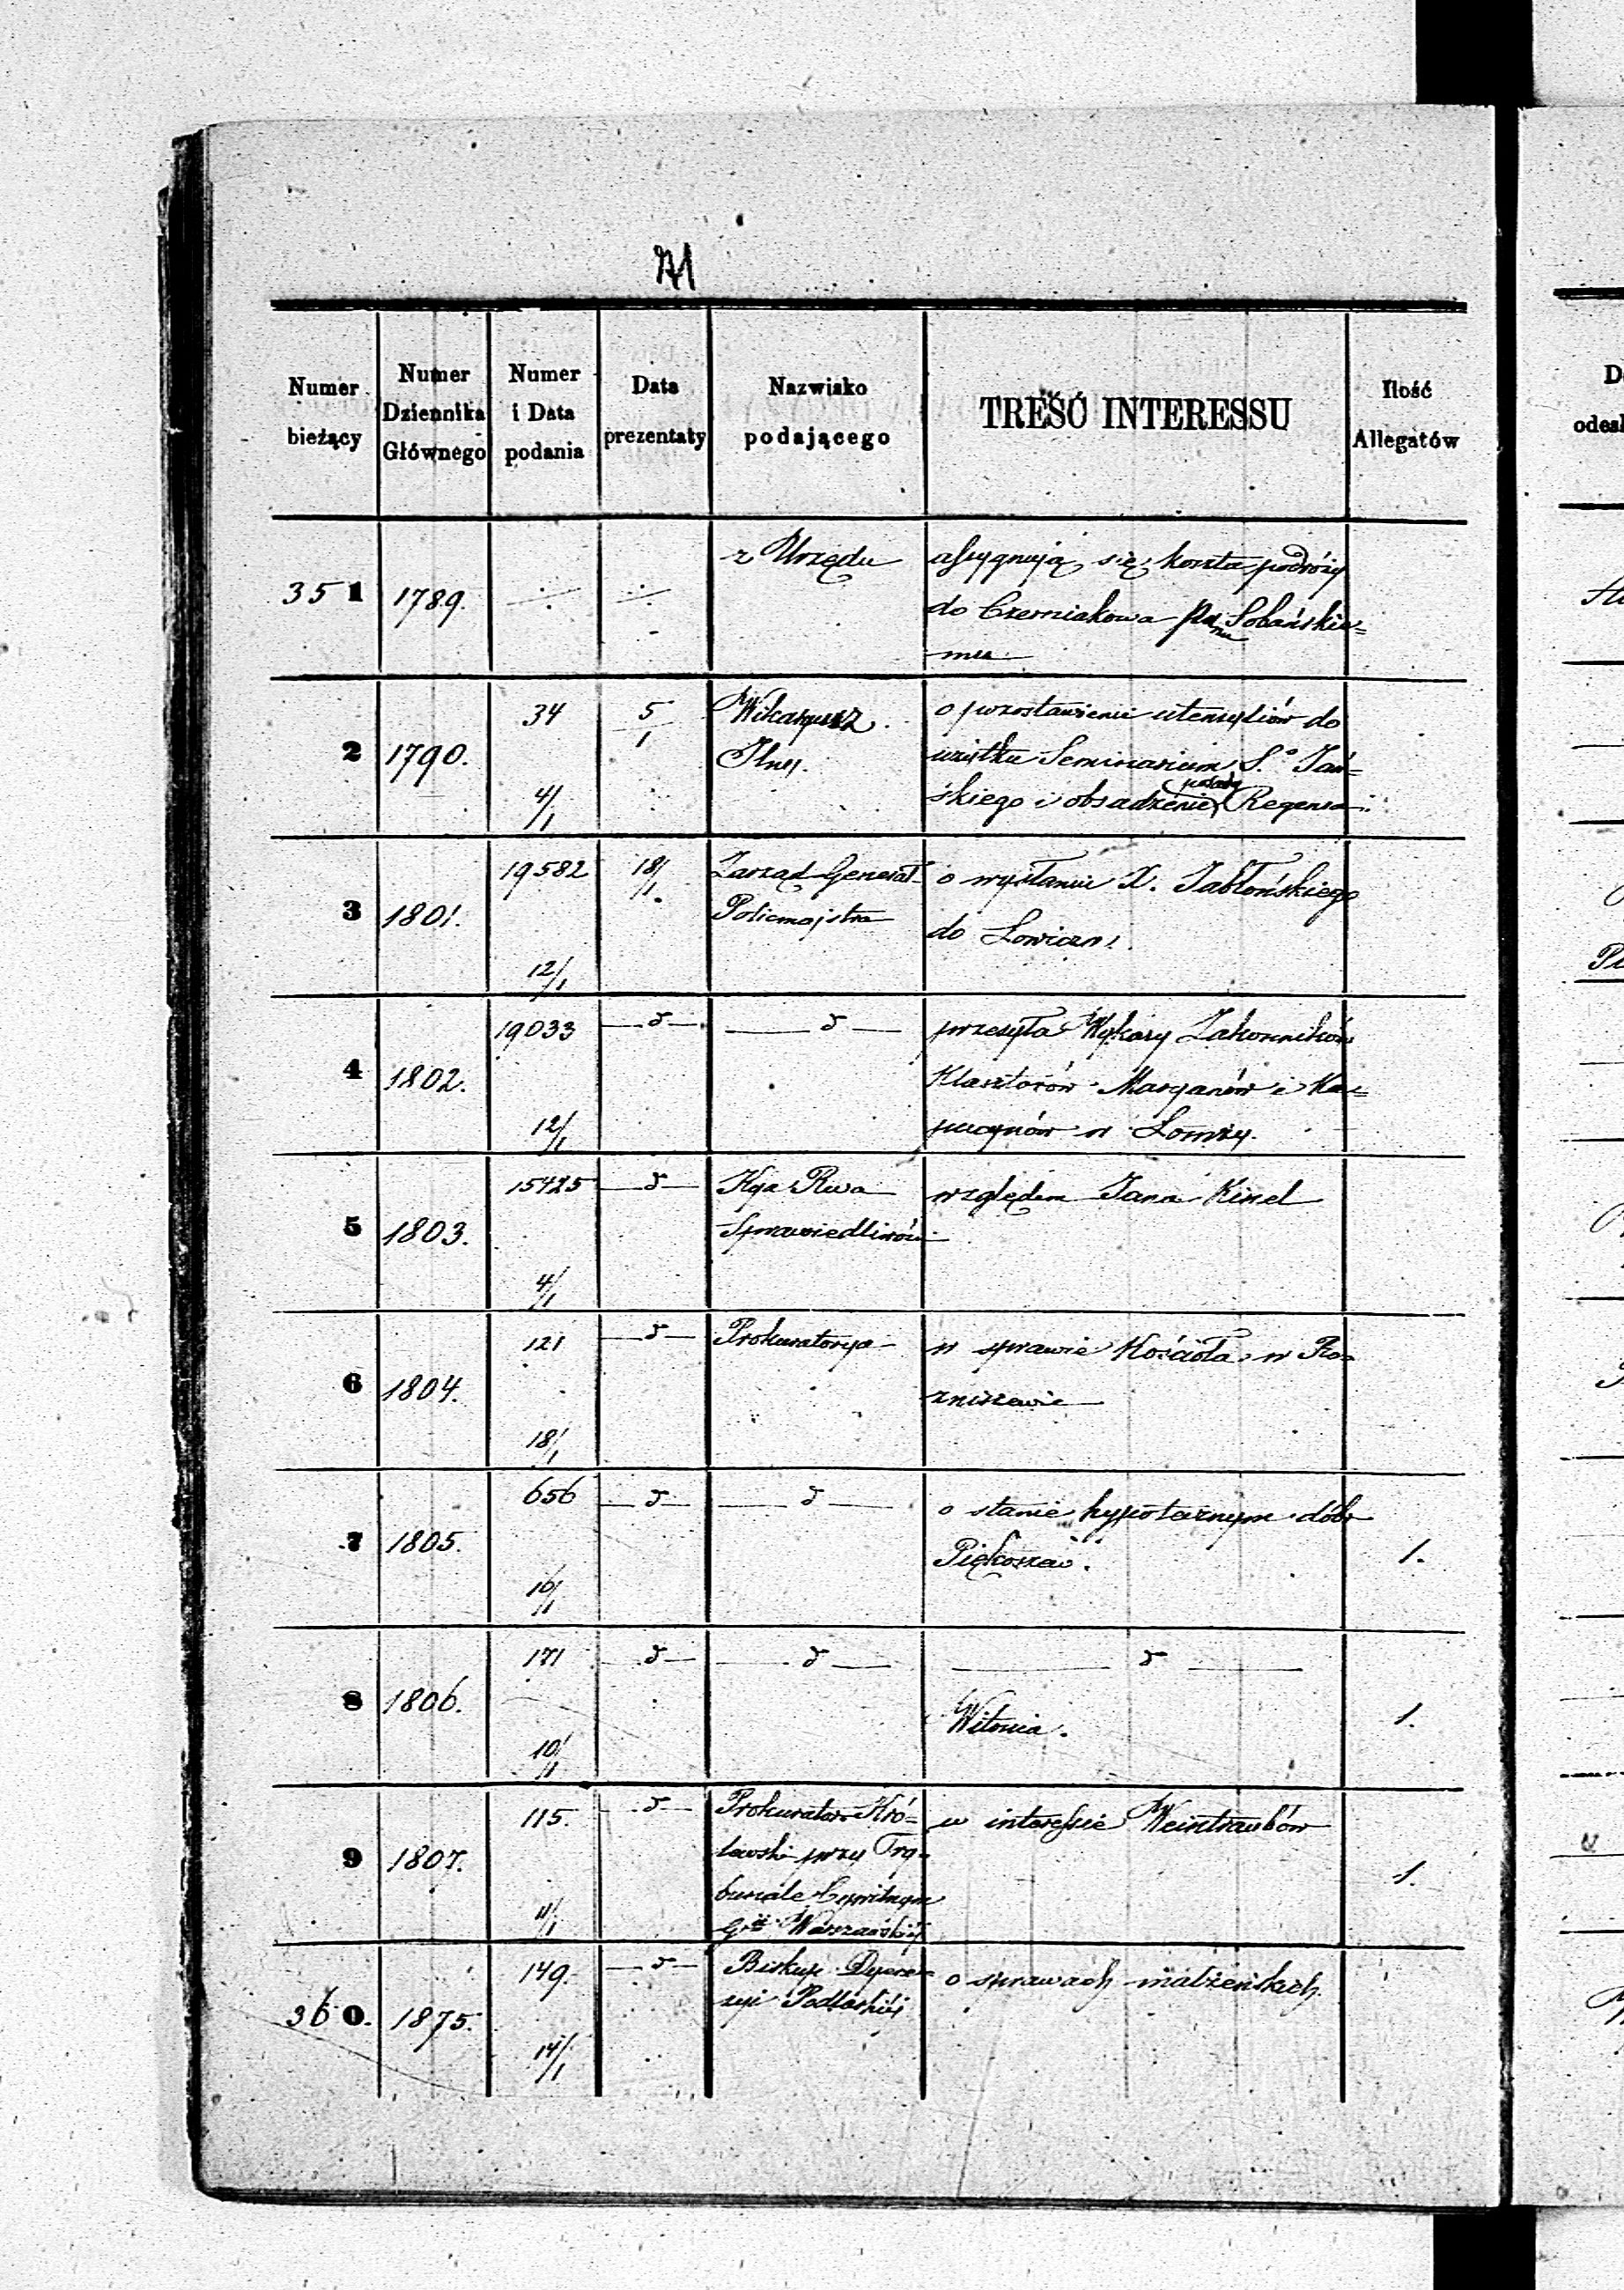 71
Numer bieżący
Numer Dziennika Głównego
Numer i Data podania
Data prezentaty
Nazwisko podającego
TREŚĆ INTERESSU
Ilość Allegatów
351 1789. z Urzędu
assygnują się koszta podróży
do Czerniakowa Panu Sobańskie=
mu
2 1790. 34 4/1 5/1
Wikaryusz
Jlny.
o pozostawienie utensyliów do
użytku Seminarium S.o Jań=
skiego i obsadzenie posady Regensa
3 1801. 19582 12/1 18/1
Zarząd Generał
Policmajstra
o wysłaniu X. Jabłońskiego
do Łowicza.
4 1802. 19033 12/1 — d — — d —
przesyła Wykazy Zakonników
Klasztorów Maryanów i Ka=
pucynów w Łomży.
5 1803. 15425 4/1 — d —
Kya Rwa
Sprawiedliwości
względem Jana Kinel
6 1804. 121 18/1 — d —
Prokuratorya
w sprawie Kościoła w Ro=
zniszewie
7 1805. 656 16/1 — d — — d —
o stanie hypotecznym dóbr
Piękoszew.
1.
8 1806. 171 10/1 — d — — d — — d —
Witonia.
1.
9 1807. 115. 11/1 — d —
Prokurator Kró=
lewski przy Try=
bunale Cywilnym
Gu Warszawskiej
w interessie Weintraubów
1.
360. 1875. 149. 14/1 — d —
Biskup Dyece=
zyi Podlaskiej
o sprawach małżeńskich.